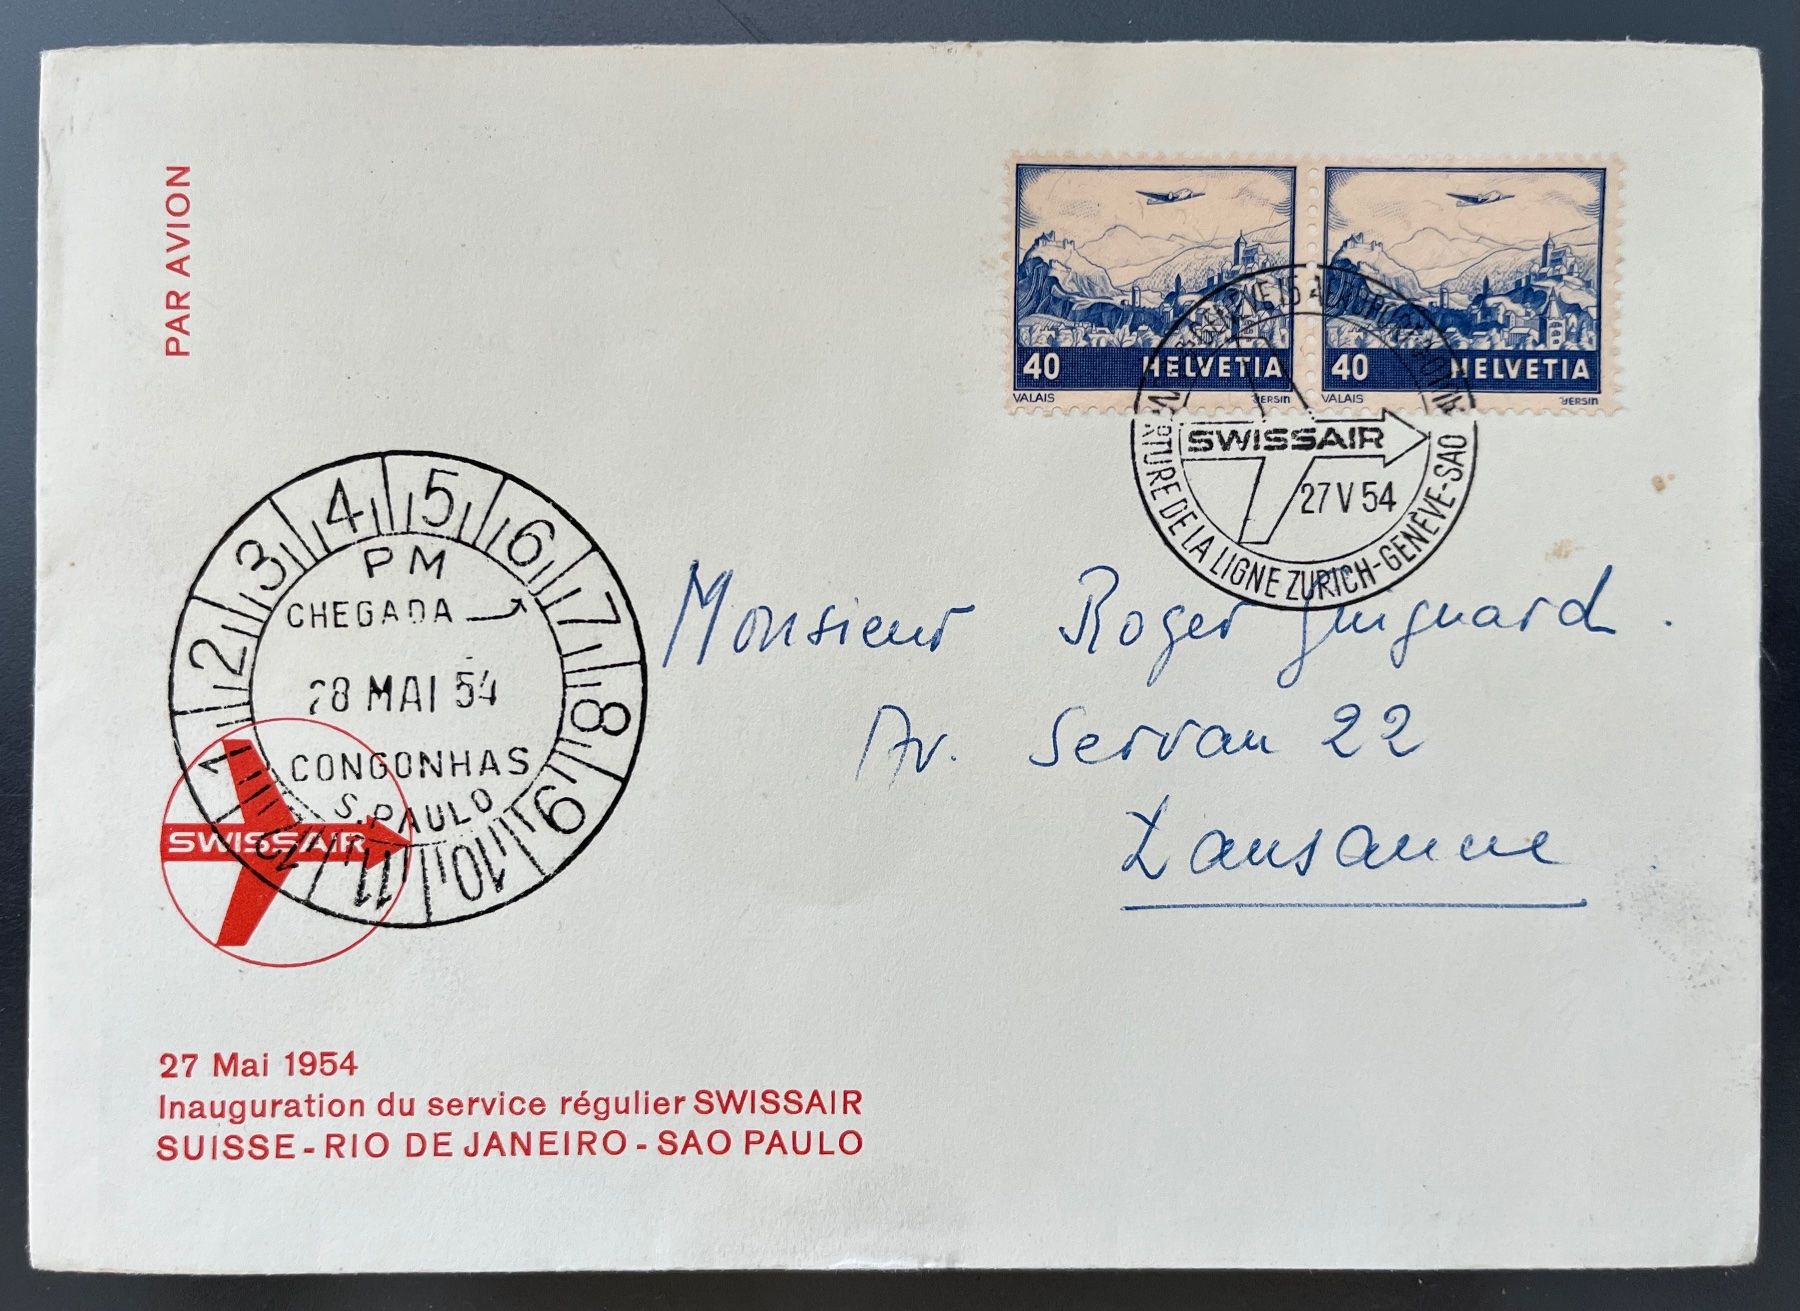 PAR AVION
40 HELVETIA
VALAIS
40 HELVETIA
VALAIS
GENÈVE 15 AÉROPORT
OUVERTURE DE LA LIGNE ZURICH-GENÈVE-SAO
SWISSAIR
27 V 54
1 2 3 4 5 6 7 8 9 10 11 12
PM
CHEGADA
28 MAI 54
CONGONHAS
S. PAULO
SWISSAIR
Monsieur Roger
Av. Servan 22
Lausanne
27 Mai 1954
Inauguration du service régulier SWISSAIR
SUISSE - RIO DE JANEIRO - SAO PAULO